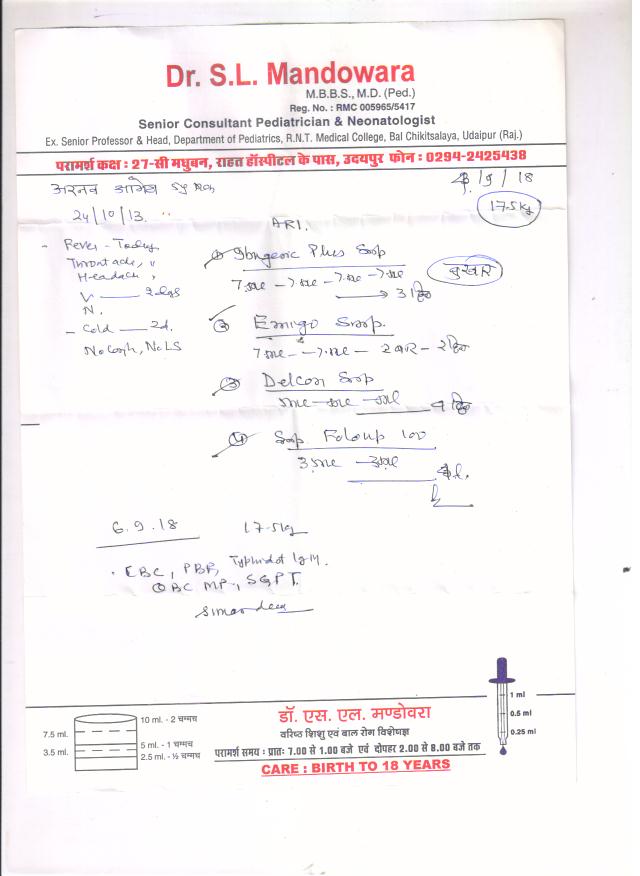 Dr. S.L. Mandowara
M.B.B.S., M.D. (Ped.)
Reg. No. : RMC 005965/5417
Senior Consultant Pediatrician & Neonatologist
Ex. Senior Professor & Head, Department of Pediatrics, R.N.T. Medical College, Bal Chikitsalaya, Udaipur (Raj.)
परामर्श कक्ष : 27-सी मधुबन, राहत हॉस्पीटल के पास, उदयपुर फोन : 0294-2425438
अरनव
/9/18
24/10/13.
17.5kg
ARI.
- Fever - Today
Throatache, "
Headache "
V 2 days
N.
- Cold 2d.
No Cough, No LS
① Ibugesic Plus Syrup
बुखार
7.5ml - 7.5ml - 7.5ml - 7.5ml
3 दिन
② Emigo Syrup.
- 2 बार - 2 दिन
③ Delcon Syrup
5ml - 5ml - 5ml
④ Syp. 100
3.5ml - 3.5ml
6.9.18 17.5kg
CBC, PBF, Typhidot IgM.
QBC MP, SGPT.
10 ml. - 2 चम्मच
7.5 ml.
5 ml - 1 चम्मच
3.5 ml.
2.5 ml. - ½ चम्मच
डॉ. एस. एल. मण्डोवरा
वरिष्ठ शिशु एवं बाल रोग विशेषज्ञ
परामर्श समय : प्रातः 7.00 से 1.00 बजे एवं दोपहर 2.00 से 8.00 बजे तक
CARE : BIRTH TO 18 YEARS
1 ml
0.5 ml
0.25 ml